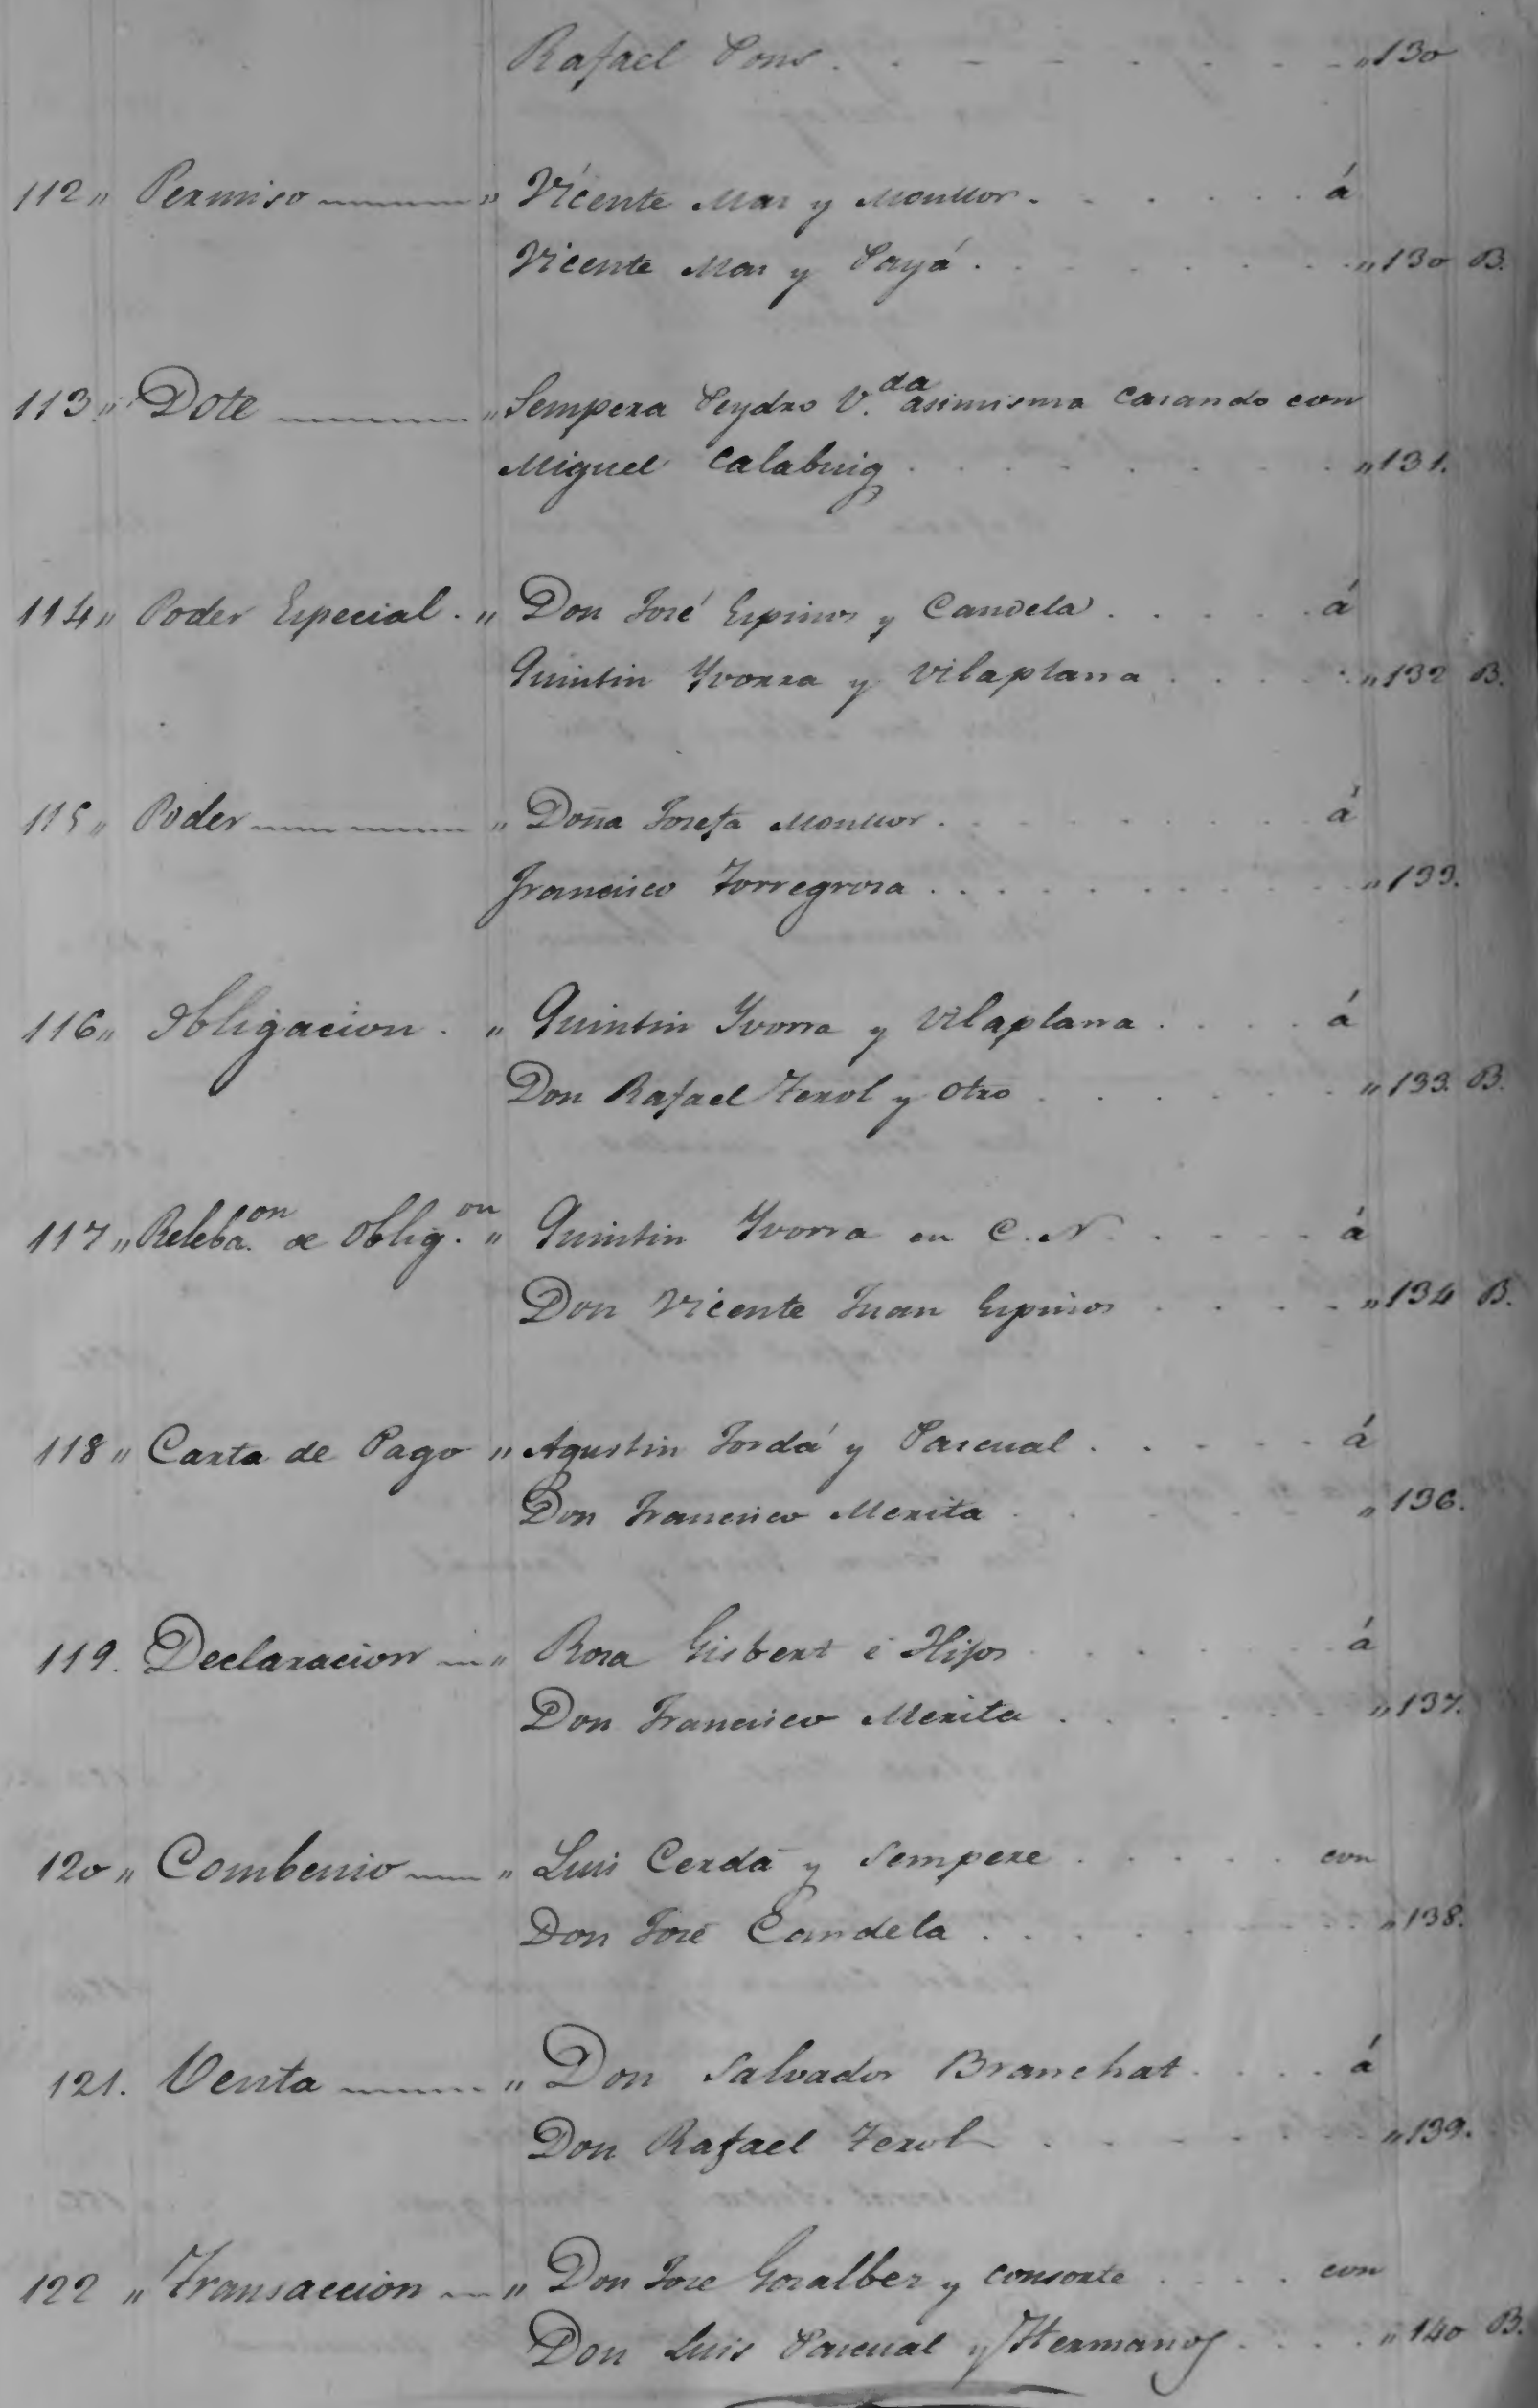 Rafael Pons . . . . . . . . „ 130
112 „ Permiso „ Vicente Mas y Monllor . . . . . . á
Vicente Mas y Payá . . . . . . . „ 130 B.
113 „ Dote „ Sempera Peydro V.da asimisma Casando con
Miguel Calabuig . . . . . . . „ 131.
114 „ Poder Especial . „ Don José Espinos y Candela . . . . . á
Quintin Yvorra y Vilaplana . . . . . „ 132 B.
115 „ Poder „ Doña Josefa Monllor . . . . . . . . á
Francisco Torregrosa . . . . . . . . . „ 133.
116 „ Obligacion . „ Quintin Yvorra y Vilaplana . . . . á
Don Rafael Terol y Otro . . . . . . . „ 133. B.
117 „ Releba.on de Oblig.on „ Quintin Yvorra en C. N. . . . . á
Don Vicente Juan Espinos . . . . „ 134 B.
118 „ Carta de Pago „ Agustin Jordá y Pascual . . . . . á
Don Francisco Merita . . . . . . „ 136.
119. Declaracion „ Rosa Gisbert é Hijos . . . . . . á
Don Francisco Merita . . . . . . „ 137.
120 „ Combenio „ Luis Cerdá y Sempere . . . . . con
Don José Candela . . . . . . . . „ 138.
121. Venta „ Don Salvador Branchat . . . . á
Don Rafael Terol . . . . . . . „ 139.
122 „ Transaccion „ Don Jose Gosalbez y consorte . . . . con
Don Luis Pascual y Hermanos . . . . „ 140 B.